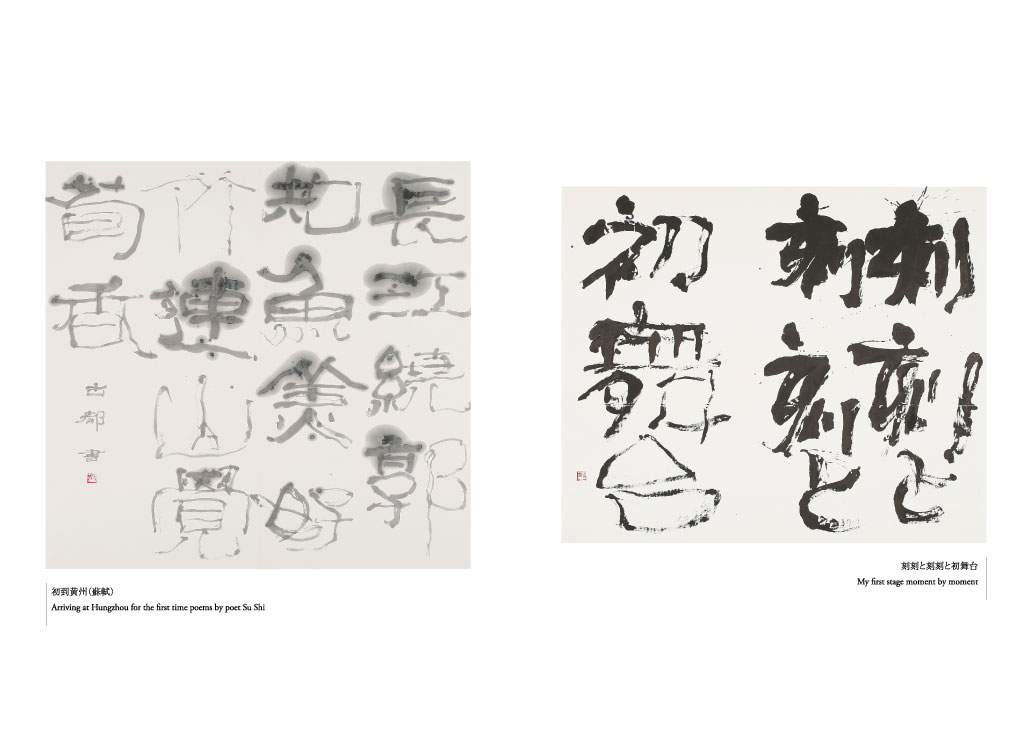 長江繞郭
知魚美好
竹連山覺
筍香
古都書
初到黄州(蘇軾)
Arriving at Hungzhou for the first time poems by poet Su Shi
刻刻と
刻刻と
初舞台
刻刻と刻刻と初舞台
My first stage moment by moment